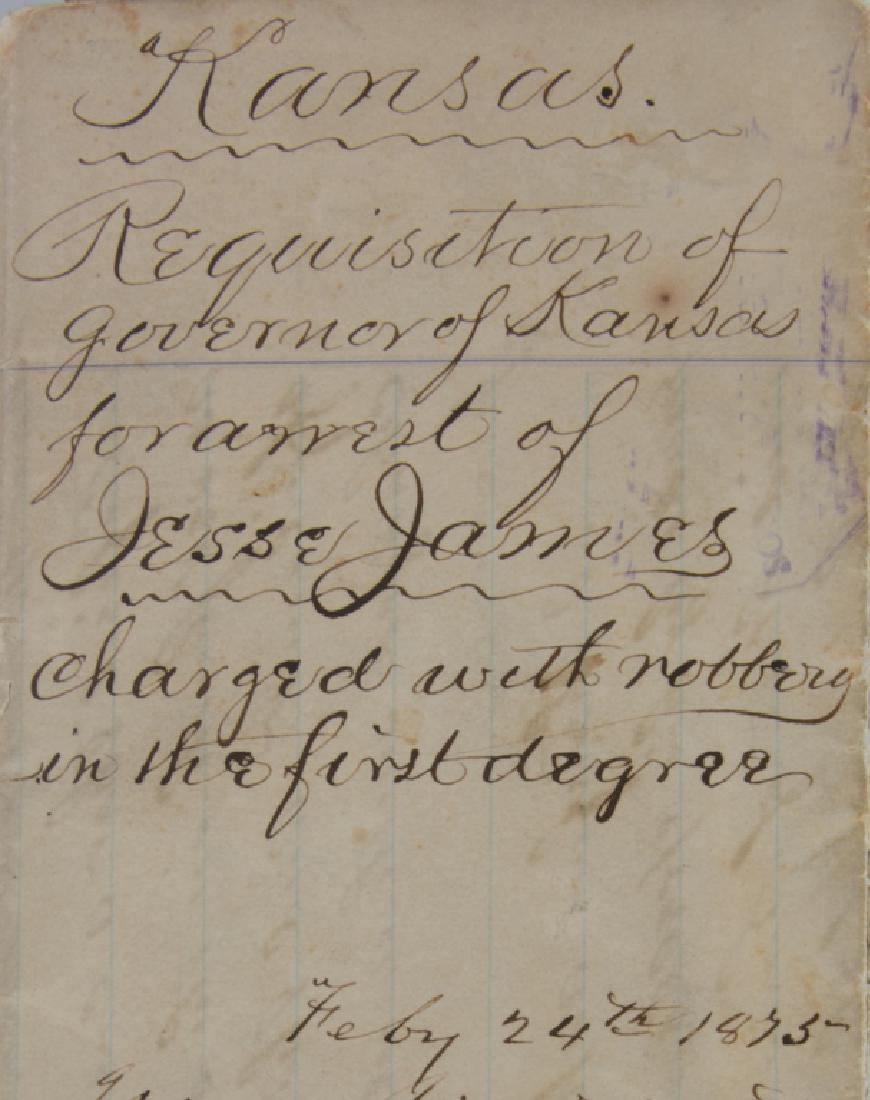 Kansas.
Requisition of
Governor of Kansas
for arrest of
Jesse James
charged with robbery
in the first degree
Feby 24th 1875